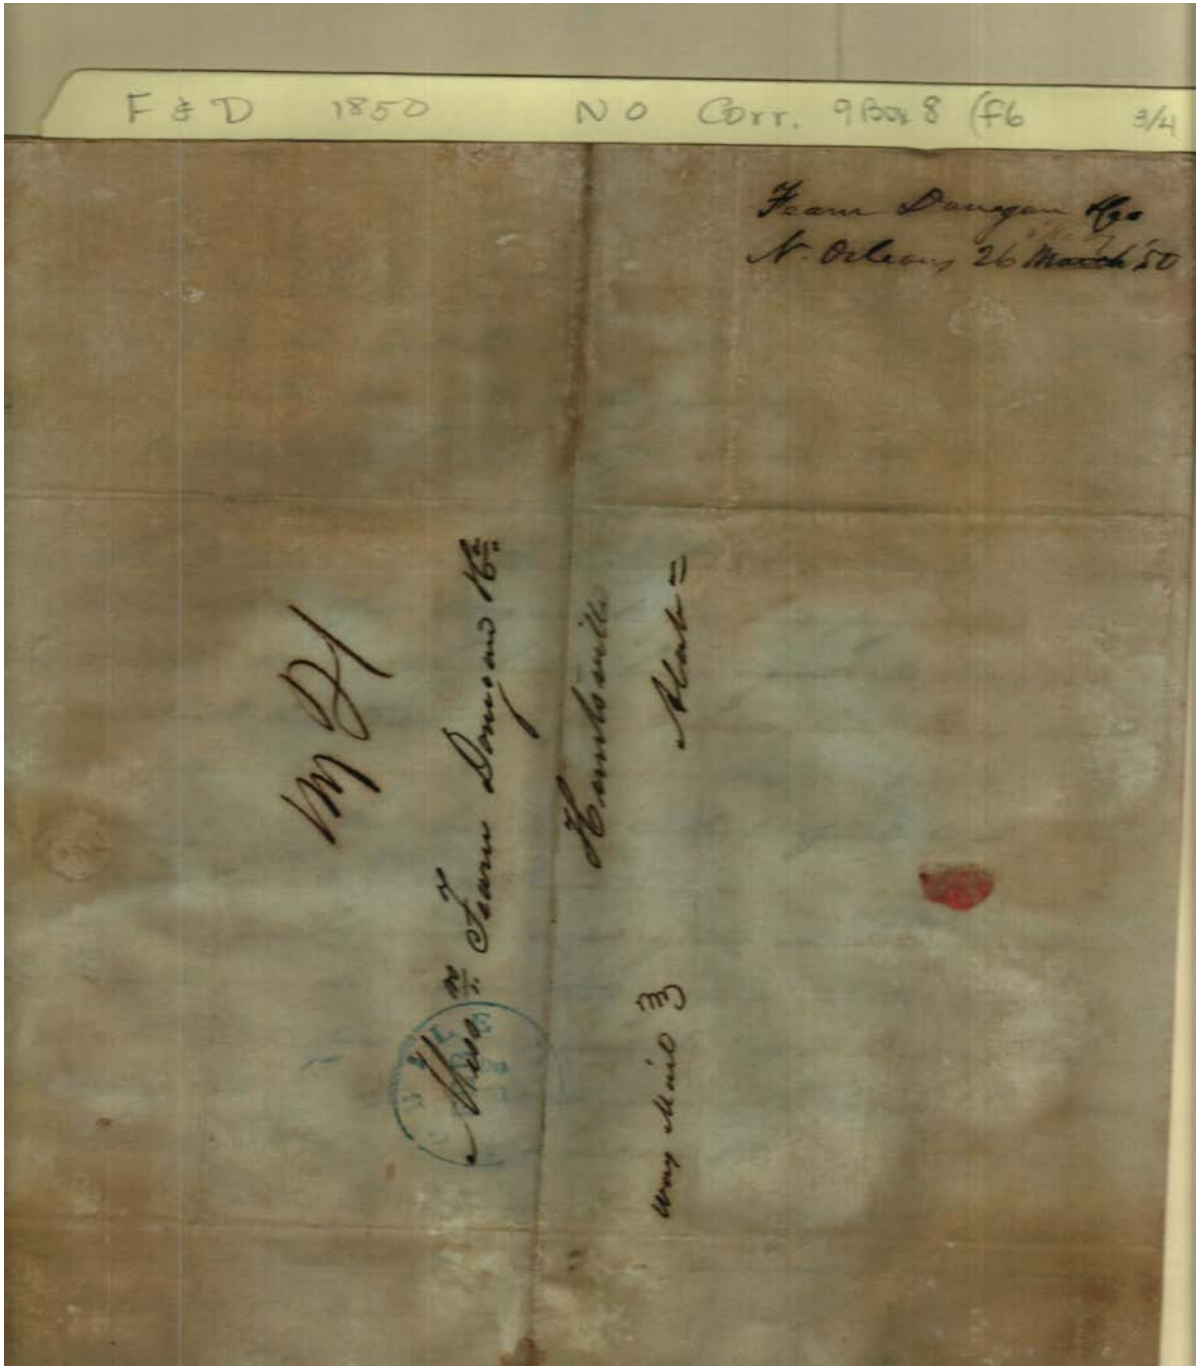 F & D 1850 NO Corr. 9 Box 8 (f6 3/4
Fearn Donegan & Co
N. Orleans 26 March 50
Mess rs. Fearn Donegan & Co
Huntsville
Alab a
Way Mail